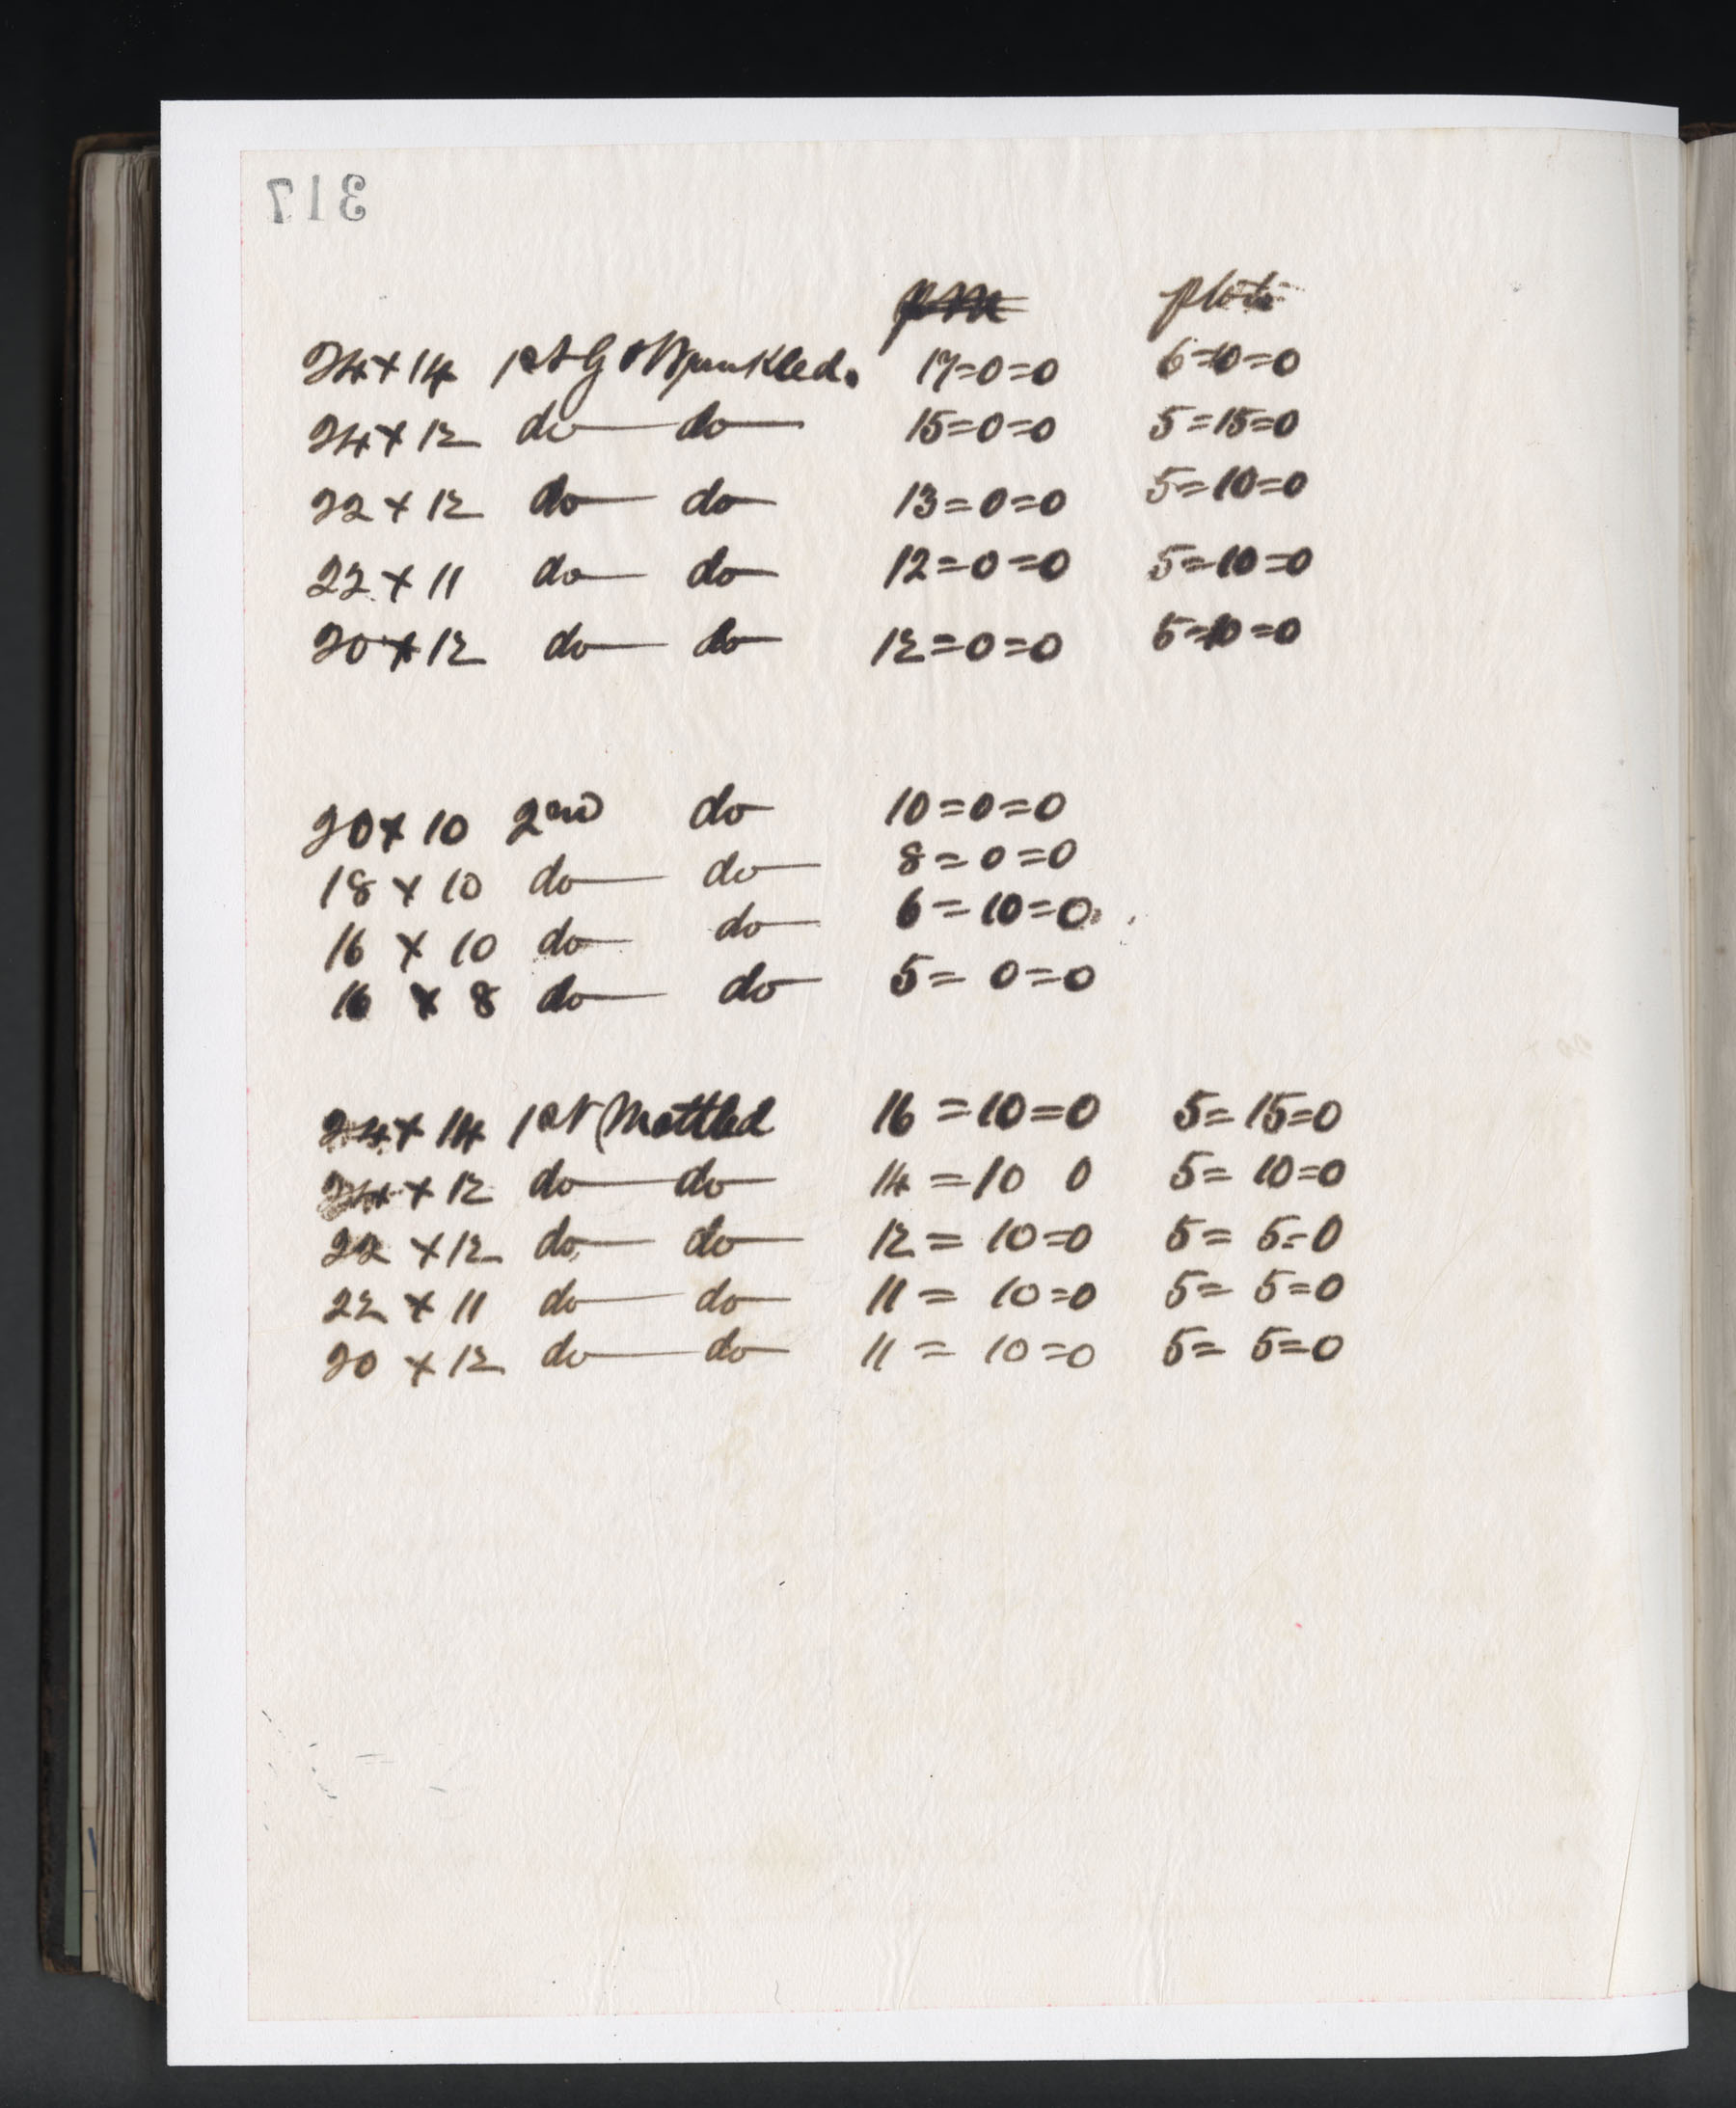 317
p M p lots
24 x 14 1st G & Wrinkled. 17=0=0 6=10=0
24 x 12 do do 15=0=0 5=15=0
22 x 12 do do 13=0=0 5=10=0
22 x 11 do do 12=0=0 5=10=0
20 x 12 do do 12=0=0 5=10=0
20 x 10 2nd do 10=0=0
18 x 10 do do 8=0=0
16 x 10 do do 6=10=0
16 x 8 do do 5=0=0
24 x 14 1st Mottled 16=10=0 5=15=0
24 x 12 do do 14=10 0 5=10=0
22 x 12 do do 12=10=0 5=5=0
22 x 11 do do 11=10=0 5=5=0
20 x 12 do do 11=10=0 5=5=0